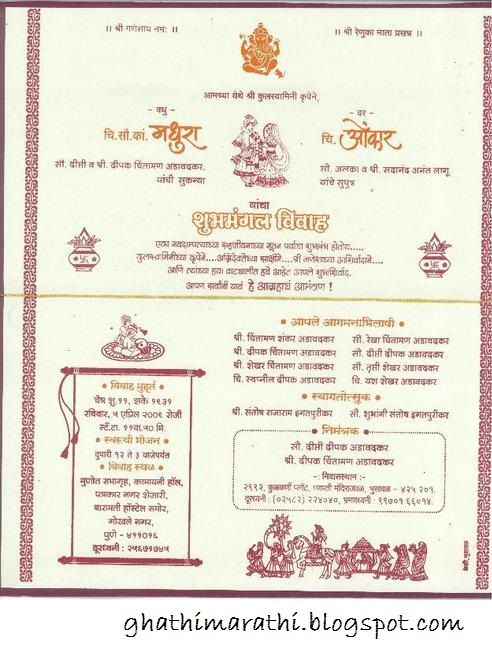 ।। श्री गणेशाय नमः ।।
।। श्री रेणुका माता प्रसन्न ।।
आमच्या येथे श्री कुलस्वामिनी कृपेने,
- वधु -
चि.सौ.कां. मधुरा
सौ. दीप्ती व श्री. दीपक चिंतामण अडावदकर,
यांची सुकन्या
- वर -
चि. ओंकार
सौ. अलका व श्री. सदानंद अनंत लागू
यांचे सुपुत्र
यांचा
शुभमंगल विवाह
एका नवदाम्पत्याच्या सहजीवनाच्या नूतन पर्वाचा शुभारंभ होतोय.....
कुलस्वामिनीच्या कृपेने....अग्निदेवतेच्या साक्षीने....श्री गणेशाच्या आशिर्वादाने...
आणि त्यांच्या ह्या वाटचालीत हवे आहेत आपले शुभाशिर्वाद.
आपण सर्वांनी यावं हे आग्रहाचं आमंत्रण !
• आपले आगमनाभिलाषी •
श्री. चिंतामण शंकर अडावदकर सौ. रेखा चिंतामण अडावदकर
श्री. दीपक चिंतामण अडावदकर सौ. दीप्ती दीपक अडावदकर
श्री. शेखर चिंतामण अडावदकर सौ. तृप्ती शेखर अडावदकर
चि. स्वप्नील दीपक अडावदकर चि. यश शेखर अडावदकर
• स्वागतोत्सुक •
श्री. संतोष राजाराम इगतपुरीकर सौ. शुभांगी संतोष इगतपुरीकर
• निमंत्रक •
सौ. दीप्ती दीपक अडावदकर
श्री. दीपक चिंतामण अडावदकर
-: निवासस्थान :-
२९९२, कुळकर्णी प्लॉट, गणपती मंदिराजवळ, भुसावळ - ४२५ २०१.
दूरध्वनी : (०२५८२) २२४०४०, भ्रमणध्वनी : ९९७०१ ६६०१४.
• विवाह मुहूर्त •
चैत्र शु.११, शके १९३१
रविवार, ५ एप्रिल २००९ रोजी
स्टॅं.टा. ११वा.५० मि.
• स्वरुची भोजन •
दुपारी १२ ते ३ वाजेपर्यंत
• विवाह स्थळ •
मुणोत सभागृह, कामायनी हॉल,
पत्रकार नगर शेजारी,
बारामती हॉस्टेल समोर,
गोखले नगर,
पुणे - ४११०१६
दूरध्वनी : २५६७१७४५
ghathimarathi.blogspot.com